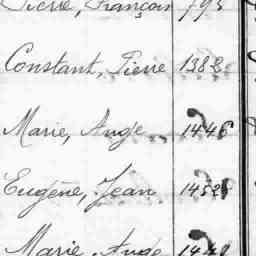 Pierre, François 795
Constant, Pierre 1382
Marie, Ange 1446
Eugène, Jean 1452
Marie, Ange